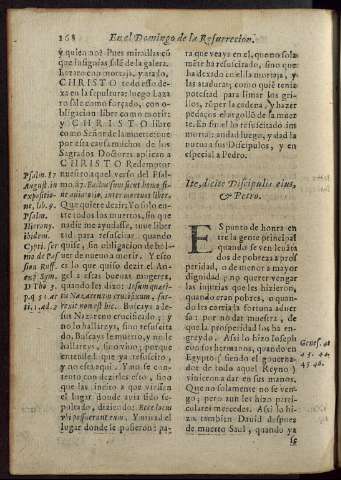 168 En el Domingo de la Resurrecion.
y quien no? Pues mirad las cõ
que insignias sale de la galera.
horaten con mortaja, y atado,
CHRISTO todo esso de-
xa en la sepultura: luego Laza
ro sale como forçado, con o-
bligacion libre como morir:
y CHRISTO libre
como Señor de la muerte: que
por esta causa muchos de los
Sagrados Doctores aplican a
CHRISTO Redemptor
nuestro aquel verso del Psal-
mo 87.
Que quiere dezir: Yo solo en-
tre todos los muertos, sin que
nadie me ayudasse, tuve liber
tad para resucitar quando
quise, sin obligacion de bol-
uer de nueuo a morir. Y esso
es lo que quiso dezir el An-
gel a estas buenas mugeres,
quando les dixo: Iesum quæri-
tis Nazarenum crucifixum, sur-
rexit non est hic. Buscays a Ie-
sus Nazareno crucificado; y
no lo hallareys, sino resucita
do, Buscays le muerto, y no le
hallareys, sino viuo; porque
entended que ya resucito,
y no està aqui. Y no se con-
tento con dezirles esto, sino
que las incito a que viessen
el lugar donde auia sido se-
pultado, diziendo: Ecce locus
vbi posuerunt eum. Y mirad el
lugar donde le pusieron: pa-
Psalm. 87
August. in
expositio-
ne
lib. 9.
Psalm.
Hierony.
ibidem.
Cypri. ser
mo de Pas
sion Ruff.
Sym.
D Tho 3.
p. q 51. ar
ti. 1. ad. 2
ra que veays en el, que no sola
mẽte ha resucitado, sino que
ha dexado en el la mortaja, y
las ataduras, como quiẽ tenia
potestad para limar los gri-
llos, rõper la cadena, y hazer
pedaços el argollõ de la muer
te. En fin el ha resucitado in-
mortal: andad luego, y dad la
nueua a sus Discipulos, y en
especial a Pedro.
Ite, dicite Discipulis eius,
& Petro.
ES punto de honra en
tre la gente principal
quando se ven leuãta
dos de pobreza a pros
peridad, o de menor a mayor
dignidad, no querer vengar
las injurias que les hizieron,
quando eran pobres, o quan-
do les corria la fortuna aduer
sa: por no dar muestra, de
que la prosperidad los ha en-
greydo. Assi lo hizo Ioseph
con sus hermanos, quando en
Egypto (siendo el gouerna-
dor de todo aquel Reyno)
vinieron a dar en sus manos.
Que no solamente no se ven-
gò; pero aun les hizo parti-
culares mercedes. Assi lo hi-
zo tambien Dauid despues
de muerto Saul, quando ya
Genes. 42
43. 44.
45. 46.
se